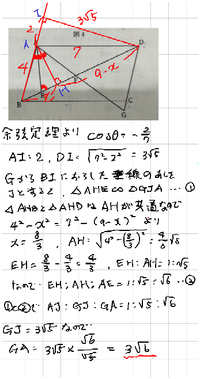 I
3√5
2
図4
A
D
7
4
9-x
H
B
C
G
余弦定理より cosθ=-2/7
AI=2, DI=√(7²-2²)=3√5
GからBIにおろした垂線のあし
Jとすると、△AHE∽△GJA …①
△AHBと△AHDはAHが共通なので
4²-x²=7²-(9-x)² より
x=8/3, AH=√(4²-(8/3)²)=4/3√5
EH=8/3-4/3=4/3, EH:AH=1:√5
なので EH:AH:AE=1:√5:√6 …②
①と②より AJ:GJ:GA=1:√5:√6
GJ=3√5 なので
GA=3√5×√6/√5=3√6